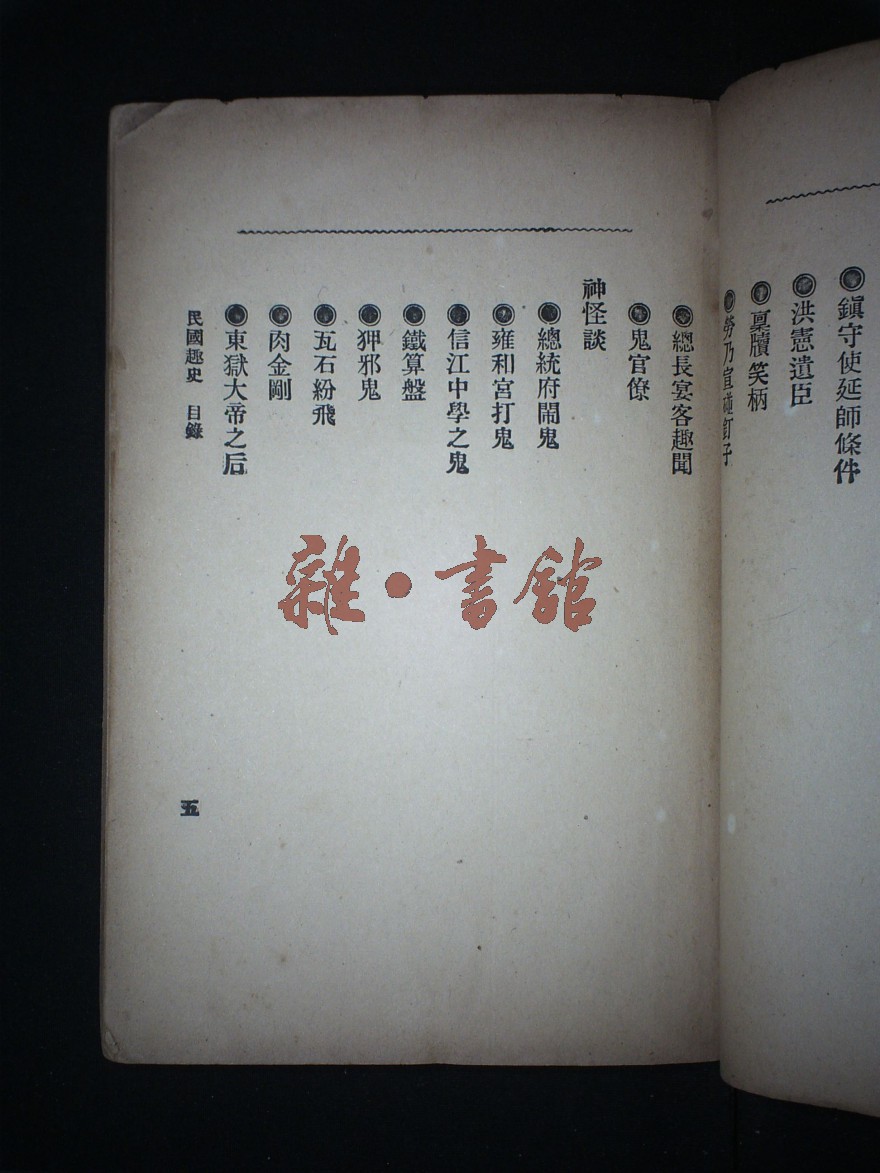 鎮守使延師條件
洪憲遺臣
稟牘笑柄
勞乃宣碰釘子
總長宴客趣聞
鬼官僚
神怪談
總統府鬧鬼
雍和宮打鬼
信江中學之鬼
鐵算盤
狎邪鬼
瓦石紛飛
肉金剛
東獄大帝之后
民國趣史 目錄
五
雜•書館